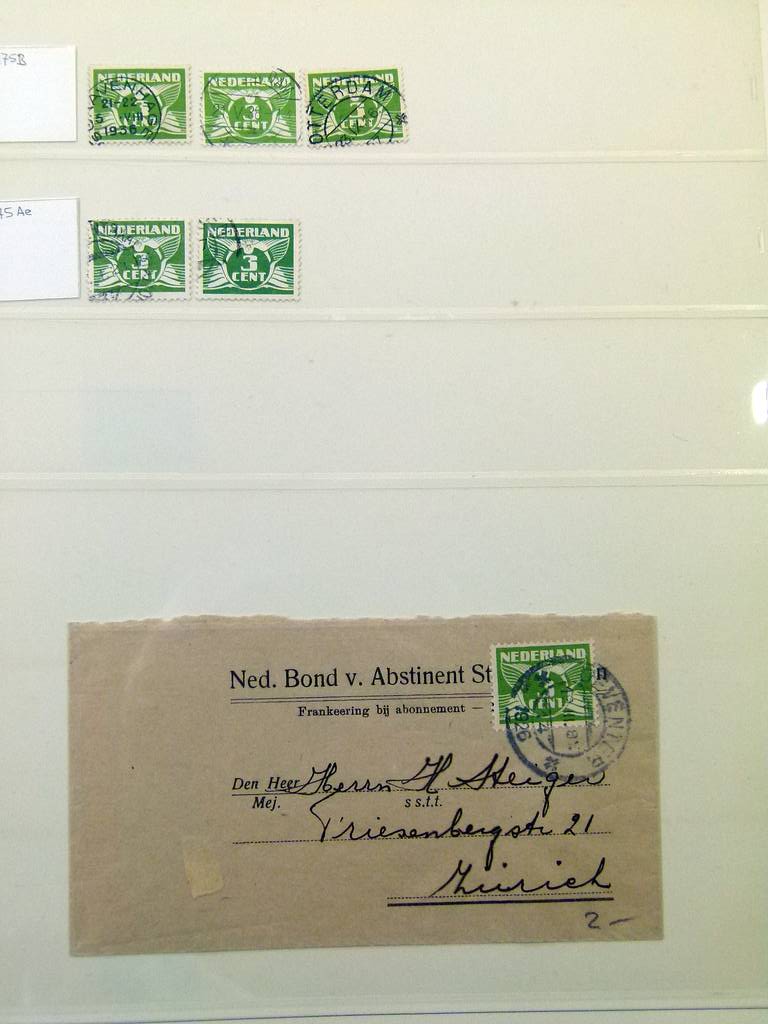 175B
NEDERLAND
3
CENT
'S GRAVENHAGE
21-22
5 VIII
1936
NEDERLAND
CENT
NEDERLAND
3
CENT
ROTTERDAM
45Ae
NEDERLAND
3
CENT
NEDERLAND
3
CENT
Ned. Bond v. Abstinent St n
Frankeering bij abonnement —
NEDERLAND
3
CENT
DEVENTER
1926
Den Heer Herrn H Steiger
Mej. s s.t.t.
Friesenbergstr 21
Zürich
2 —